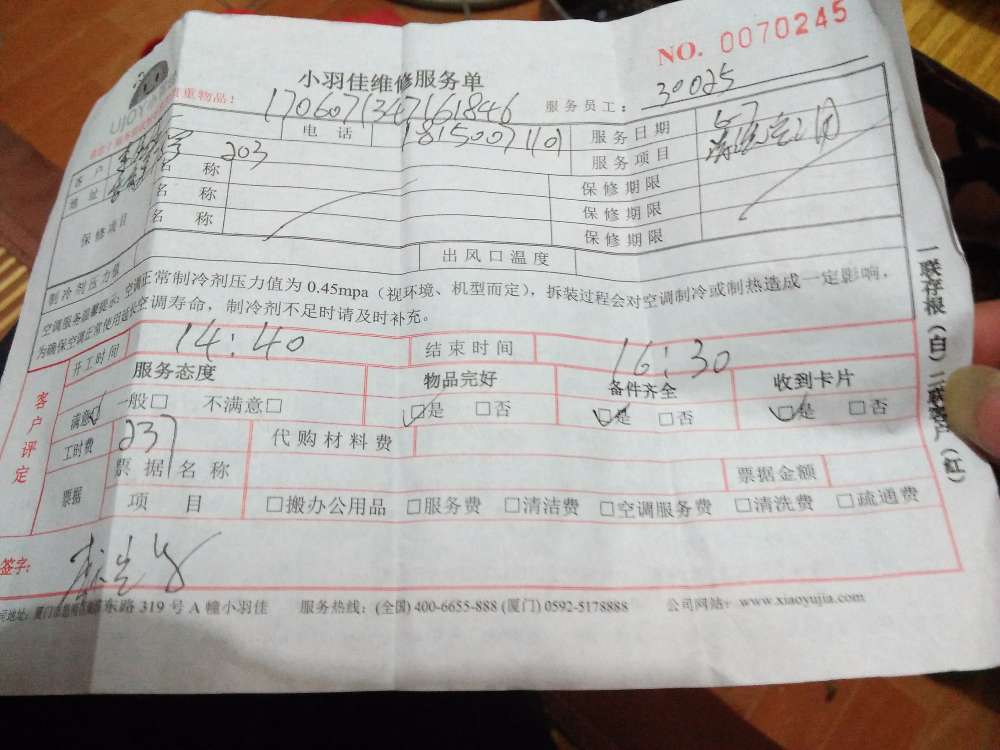 NO. 0070245
小羽佳维修服务单
UJOY
重物品!
17060713471618​46
服务员工: 30025
客户
电话 18150071101
服务日期 6.7
地址 203
服务项目
保修项目
名称 保修期限
名称 保修期限
名称 保修期限
制冷剂压力值 出风口温度
空调服务温馨提示:空调正常制冷剂压力值为0.45mpa(视环境、机型而定),拆装过程会对空调制冷或制热造成一定影响,
为确保空调正常使用延长空调寿命,制冷剂不足时请及时补充。
客户评定
开工时间 14:40 结束时间 16:30
服务态度 物品完好 备件齐全 收到卡片
满意☑ 一般□ 不满意□ ☑是 □否 ☑是 □否 ☑是 □否
工时费 237 代购材料费
票据 票据名称 票据金额
项目 □搬办公用品 □服务费 □清洁费 □空调服务费 □清洗费 □疏通费
签字:
司地址:厦门市 东路319号A幢小羽佳 服务热线:(全国)400-6655-888 (厦门)0592-5178888 公司网站:www.xiaoyujia.com
一联存根(白)二联客户(红)